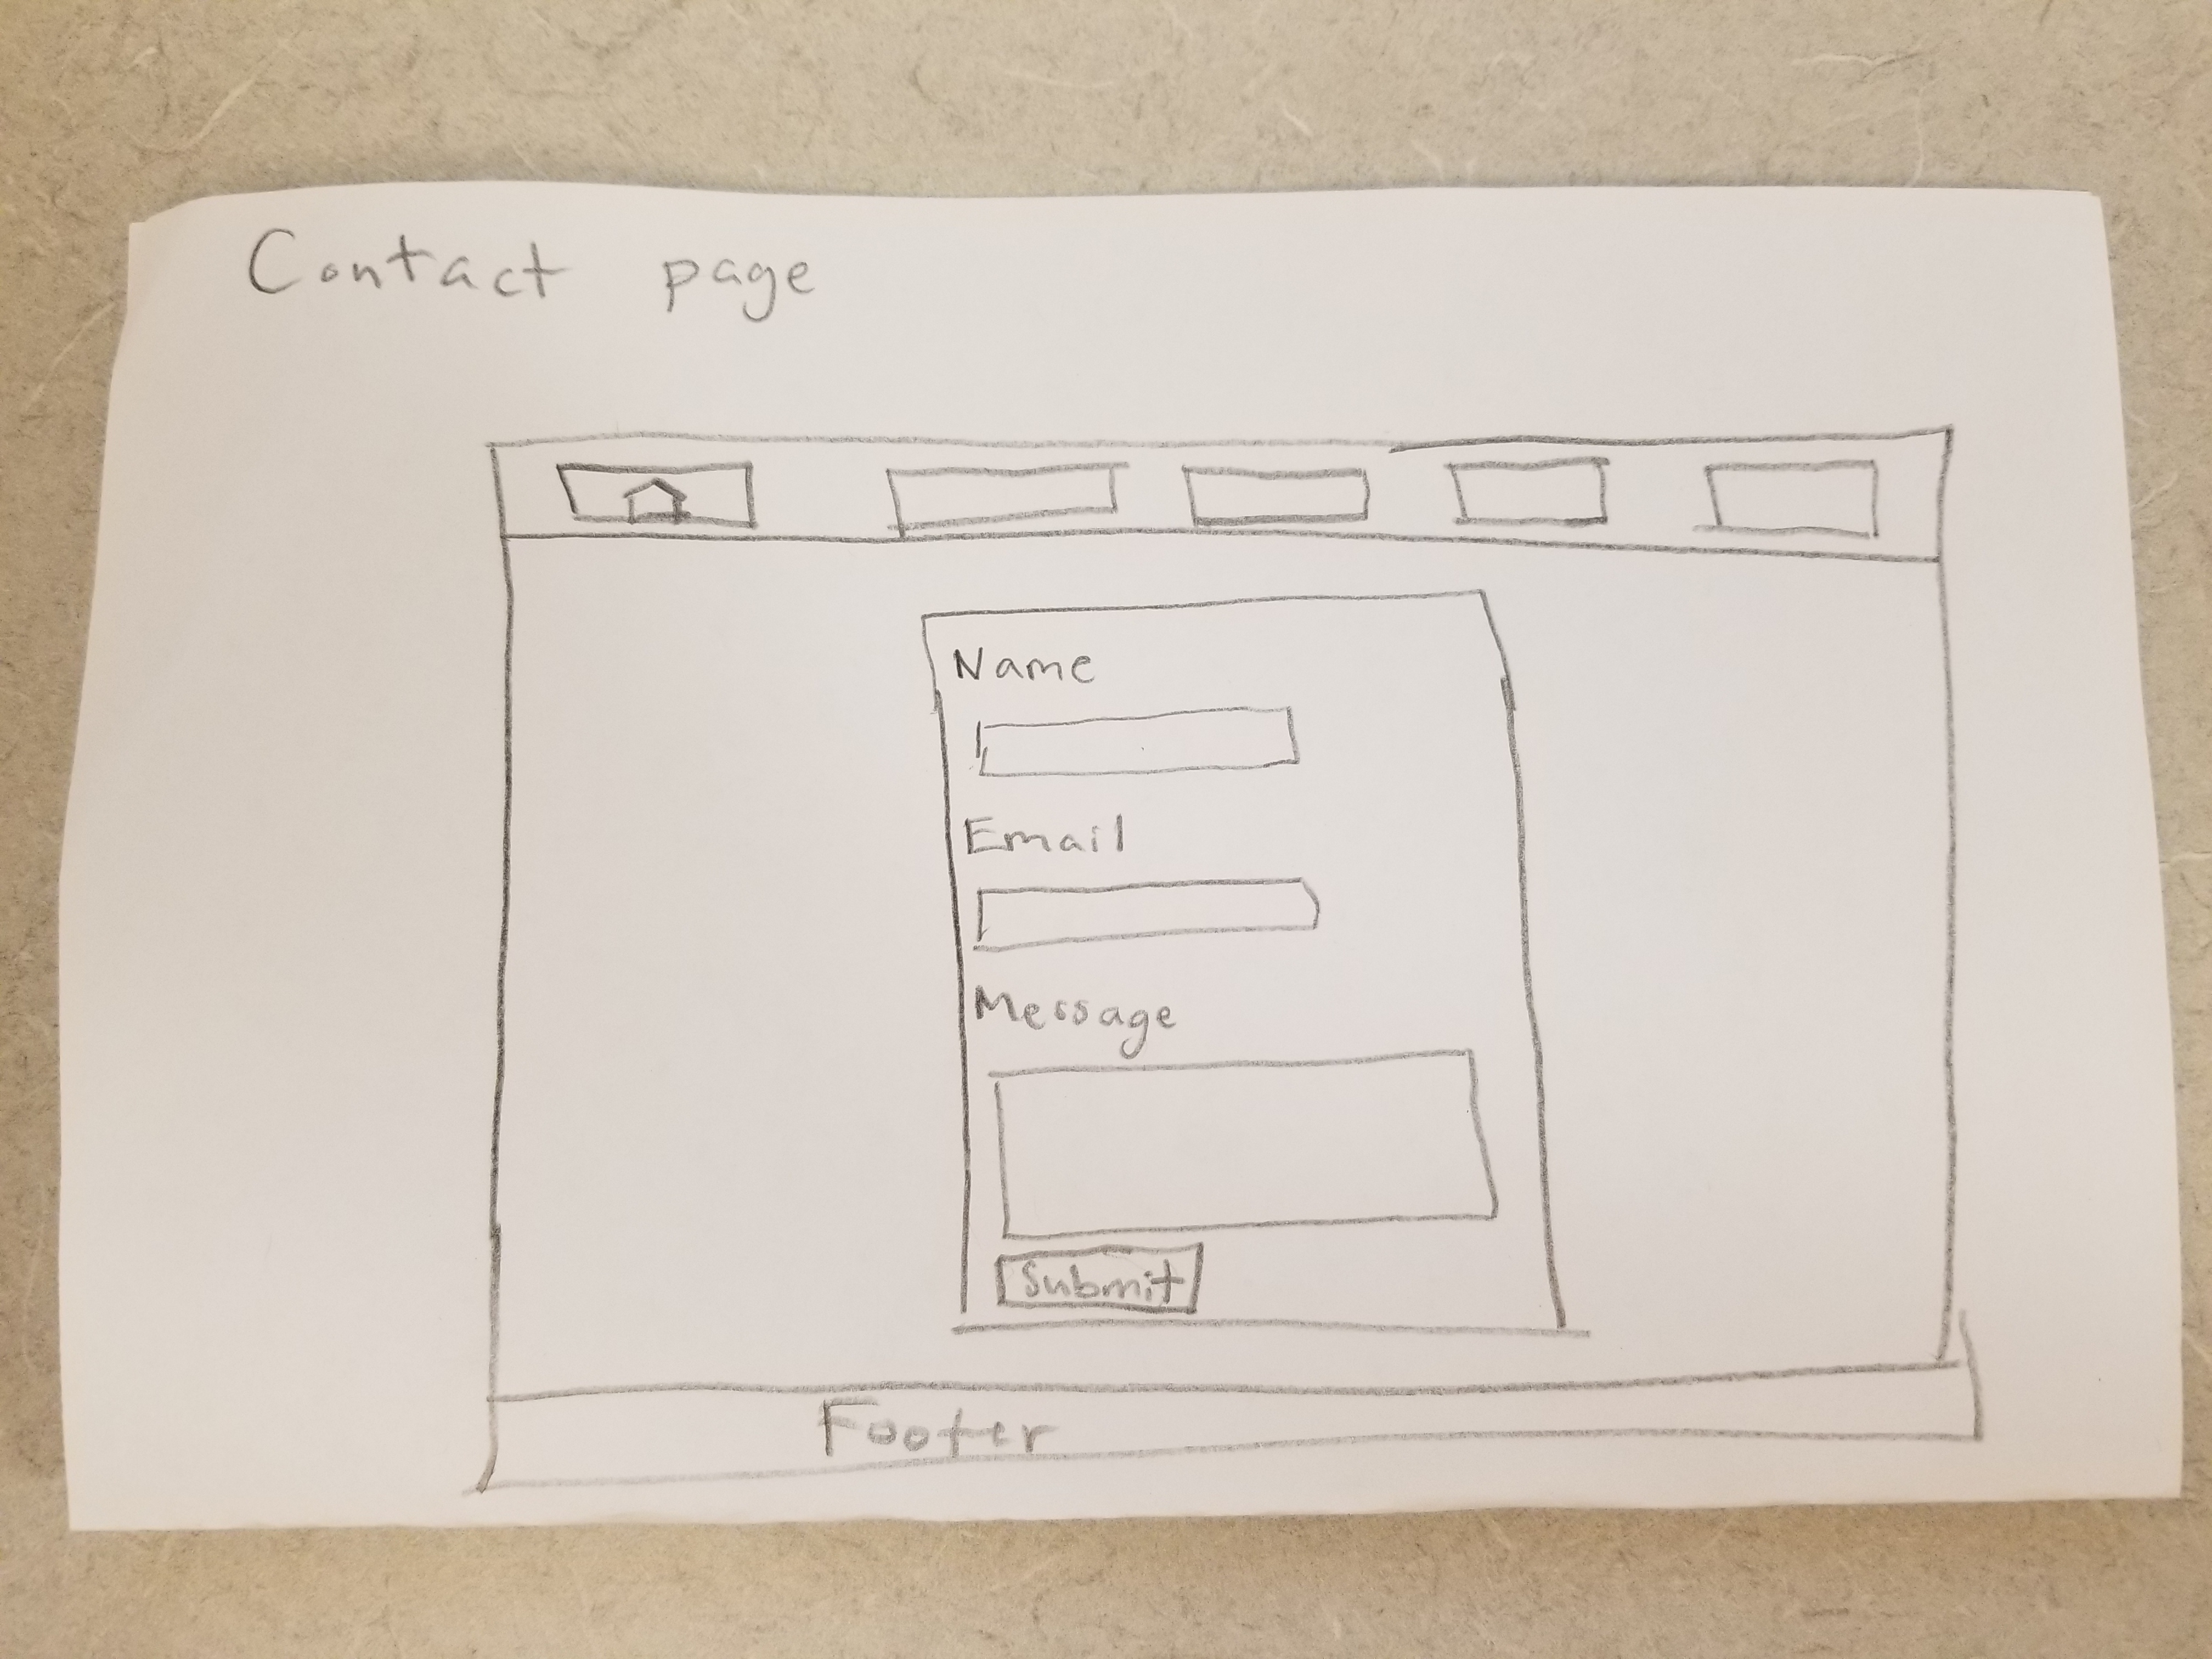 Contact page
Name
Email
Message
Submit
Footer